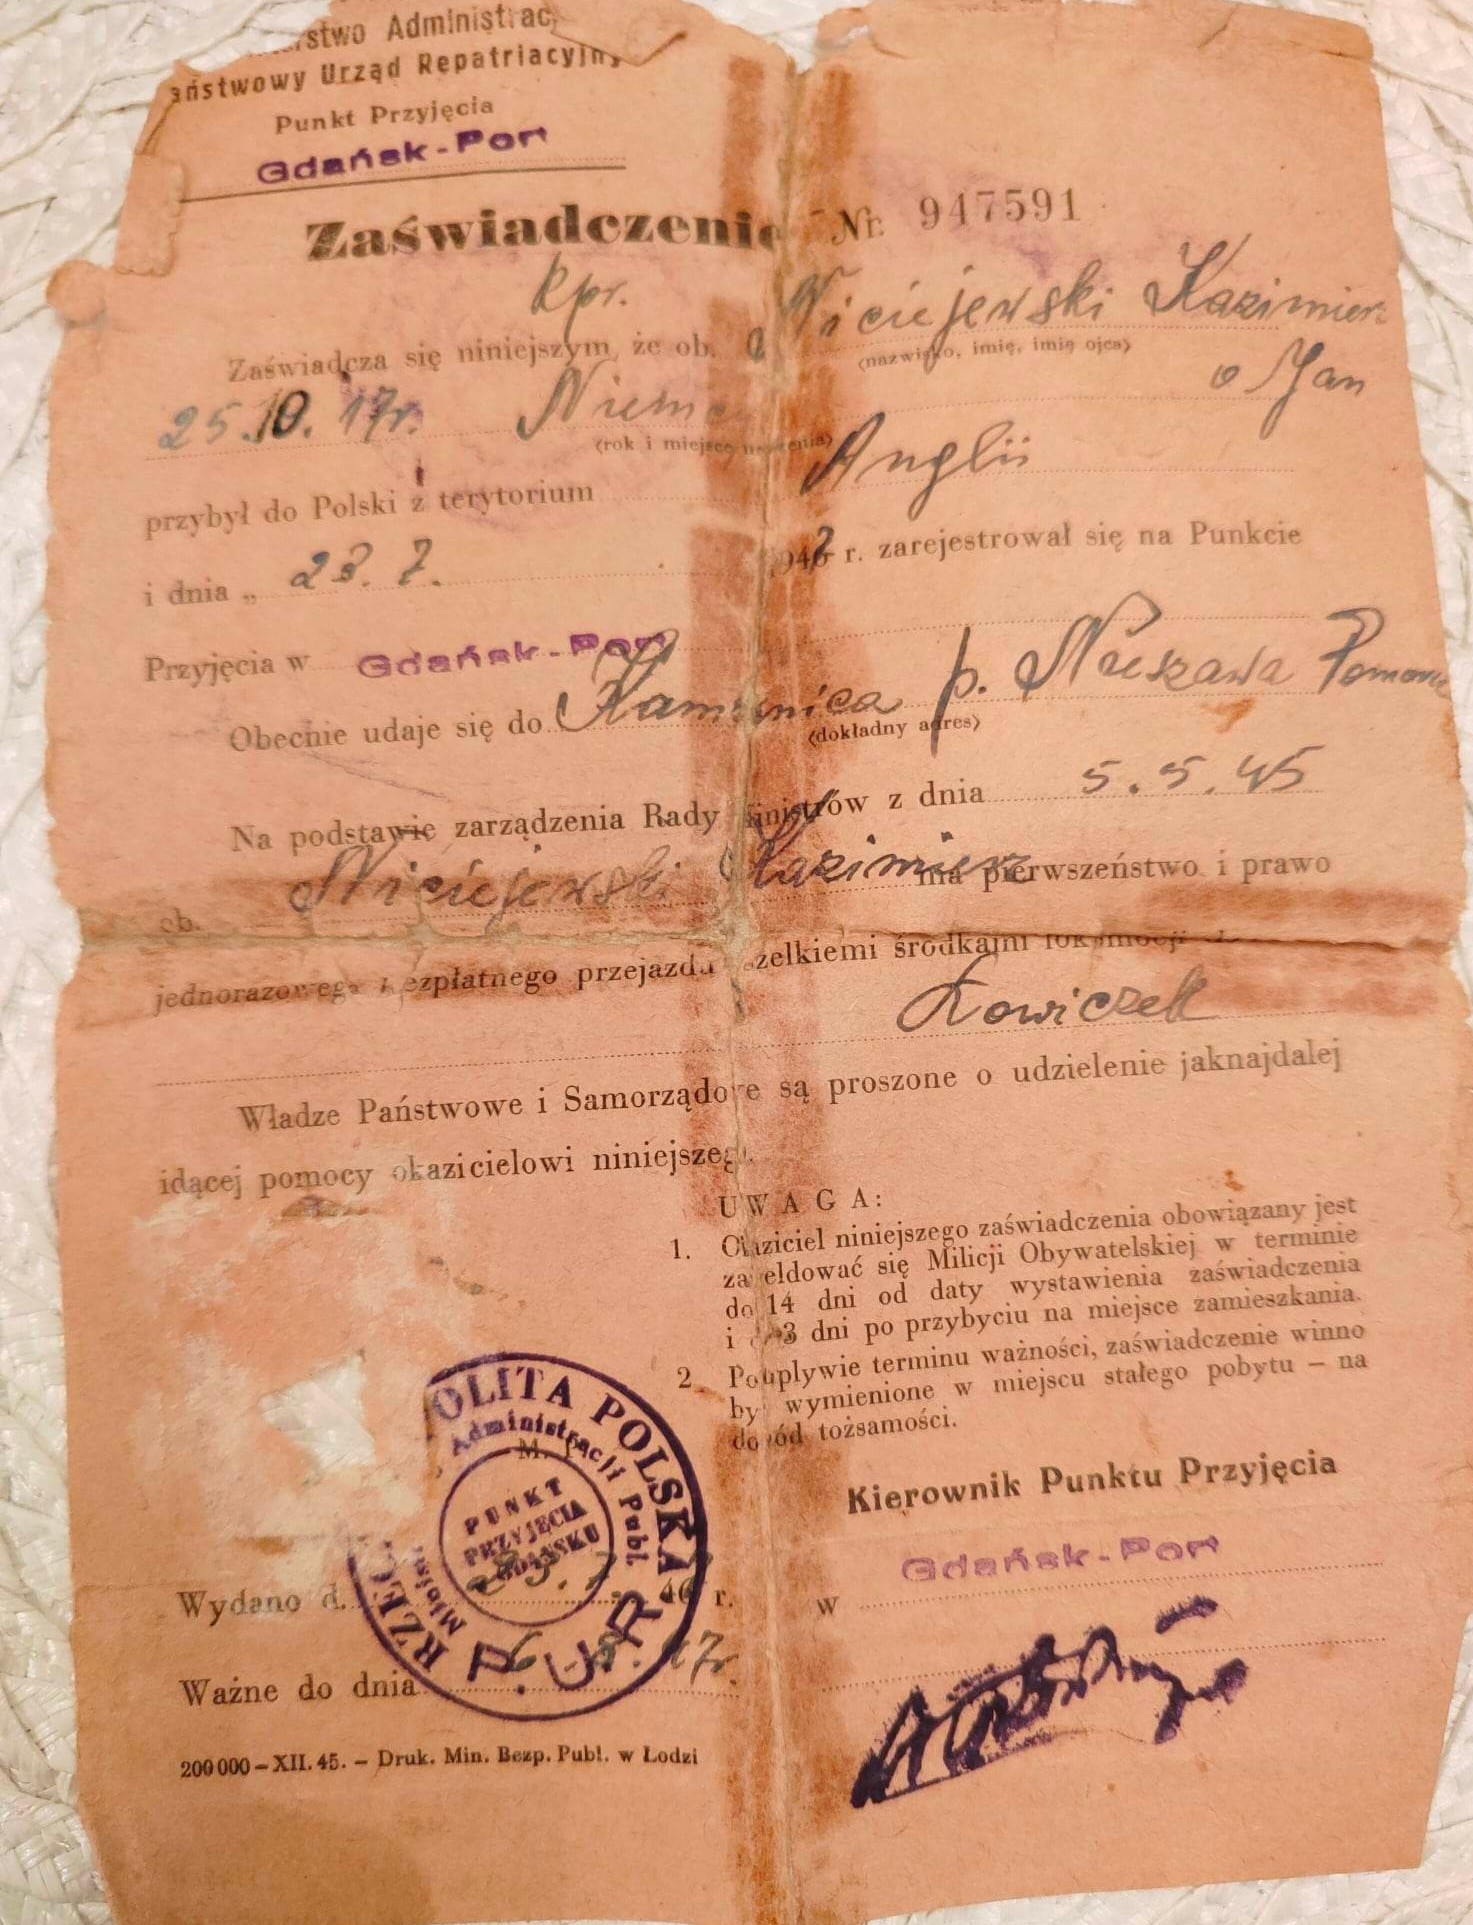 Administrac
Państwowy Urząd Repatriacyjny
Punkt Przyjęcia
Gdańsk-Port
Zaświadczenie Nr. 947591
kpr.
Zaświadcza się niniejszym, że ob. Niciejewski Kazimierz
(nazwisko, imię, imię ojca)
o Jan
25.10.17r. Niemc
(rok i miejsce urodzenia)
przybył do Polski z terytorium Anglii
i dnia „ 23. 7. 1947 r. zarejestrował się na Punkcie
Przyjęcia w Gdańsk-Port
Obecnie udaje się do Kamienica p. Nieszawa Pomorze
(dokładny adres)
Na podstawie zarządzenia Rady Ministrów z dnia 5.5.45
ob. Niciejewski Kazimierz ma pierwszeństwo i prawo
jednorazowego bezpłatnego przejazdu wszelkiemi środkami lokomocji do
Łowiczek
Władze Państwowe i Samorządowe są proszone o udzielenie jaknajdalej
idącej pomocy okazicielowi niniejszego.
UWAGA:
1. Okaziciel niniejszego zaświadczenia obowiązany jest
zameldować się Milicji Obywatelskiej w terminie
do 14 dni od daty wystawienia zaświadczenia
i do 3 dni po przybyciu na miejsce zamieszkania.
2. Po upływie terminu ważności, zaświadczenie winno
być wymienione w miejscu stałego pobytu – na
dowód tożsamości.
M. P.
OLITA POLSKA
Administracji Publ.
PUNKT
PRZYJĘCIA
GDAŃSKU
P.U.R
Kierownik Punktu Przyjęcia
w Gdańsk-Port
Wydano d. 23. 7. 46 r.
Ważne do dnia 6. 8. 47r.
200 000 – XII. 45. – Druk. Min. Bezp. Publ. w Łodzi